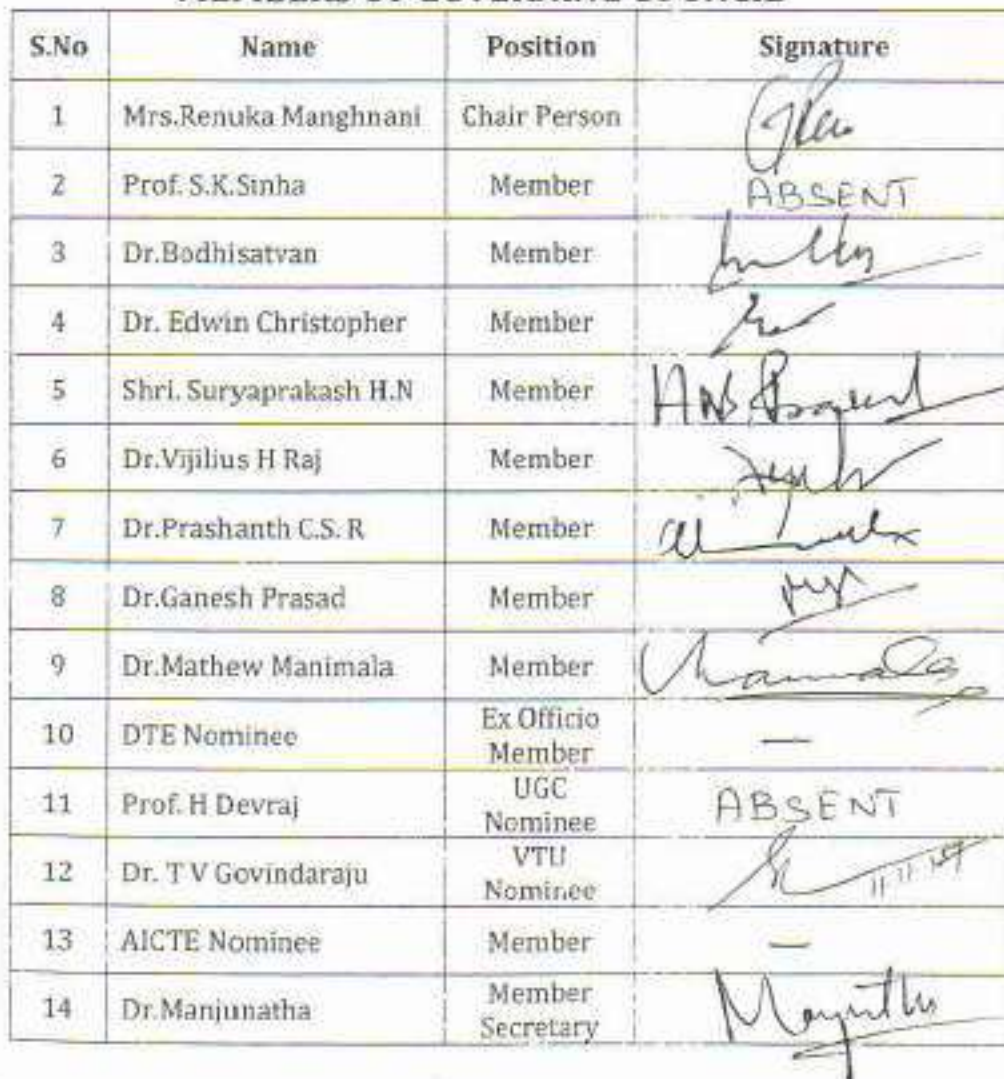 MEMBERS OF GOVERNING COUNCIL
S.No Name Position Signature
1 Mrs.Renuka Manghnani Chair Person
2 Prof. S.K.Sinha Member ABSENT
3 Dr.Bodhisatvan Member
4 Dr. Edwin Christopher Member
5 Shri. Suryaprakash H.N Member
6 Dr.Vijilius H Raj Member
7 Dr.Prashanth C.S. R Member
8 Dr.Ganesh Prasad Member
9 Dr.Mathew Manimala Member
10 DTE Nominee Ex Officio
Member —
11 Prof. H Devraj UGC
Nominee ABSENT
12 Dr. T V Govindaraju VTU
Nominee
13 AICTE Nominee Member —
14 Dr.Manjunatha Member
Secretary